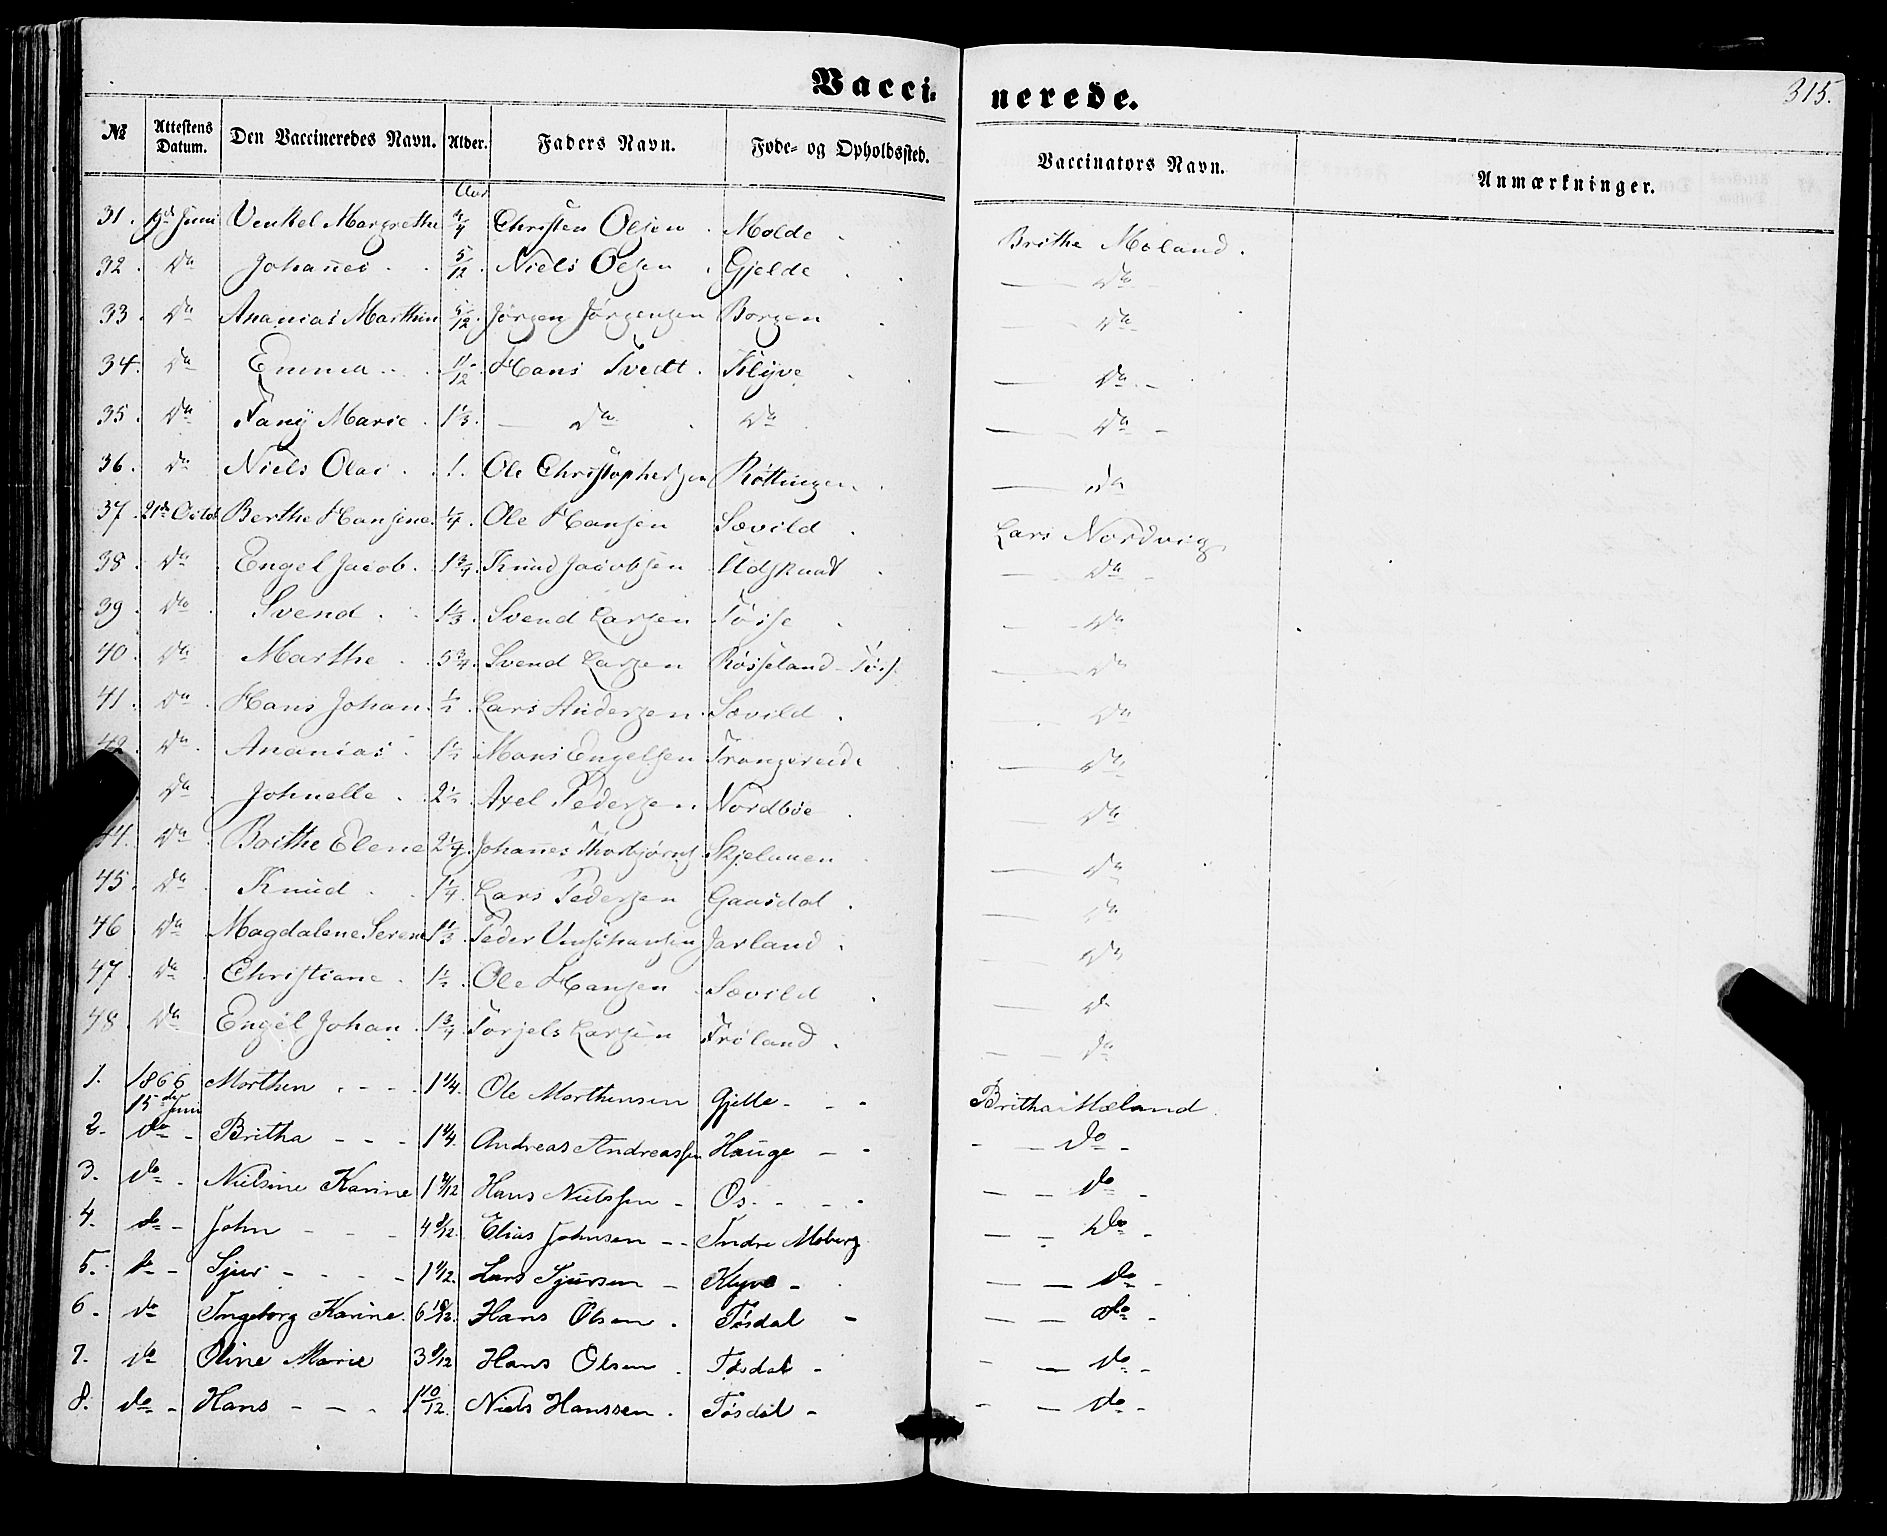 Vacci- nerede.
315.
№ Attestens Datum. Den Vaccineredes Navn. Alder. Faders Navn. Føde- og Opholdssted. Vaccinators Navn. Anmærkninger.
Aar
31. 19de Juni Venkel Margrethe Christen Olsen Molde Brithe Mæland.
32. Do Johañes 5/12 Niels Olsen Gjelde Do
33. Do Ananias Marthin 5/12 Jørgen Jørgensen Borgen Do
34. Do Emma 11/12 Hans Tvedt Klyve Do
35. Do Fany Marie 1 1/3 Do Do Do
36. Do Niels Olai 1. Ole Christophersen Røttingen Do
37. 21de Octob Berthe Hansine 1/4 Ole Hansen Søvild Lars Nordvig
38. Do Engel Jacob 1 3/4 Knud Jacobsen Udskuat Do
39. Do Svend 1 1/3 Svend Larsen Tøsse Do
40. Do Marthe 5 3/4 Svend Larsen Røsseland - Tøs. Do
41. Do Hans Johan 1/2 Lars Andersen Søvild Do
42. Do Ananias 1 1/2 Mons Engelsen Trangereide Do
Do Johnelle 2 1/2 Axel Pedersen Nordbøe Do
44. Do Brithe Elene 2 1/4 Johañes Thorbjørns. Skjelanen Do
45. Do Knud 1 1/4 Lars Pedersen Gaasdal Do
46 Do Magdalene Serene 1 1/3 Peder Jarland Do
47. Do Christiane 1 1/2 Ole Hansen Søvild Do
48. Do Engel Johan 1 3/4 Torjels Larsen Trøland Do
1. 1866 15de Juni Morthen 1 1/4. Ole Morthensen Gjelle Britha Mæland
2. do Britha 1 1/4. Andreas Andreassen Hauge do
3. do Nielsine Karine Hans Nielssen Os do
4. do John 4 8/12. Elias Johnsen Indre Moberg do
5. do Sjur 1 1/12. Lars Sjursen Klyve do
6. do Ingeborg Karine 6 10/12. Hans Olsen Tøsdal do
7. do Oline Marie 3 8/12 Hans Olsen Tøsdal do
8. do Hans 1 10/12. Niels Hanssen Tøsdal do